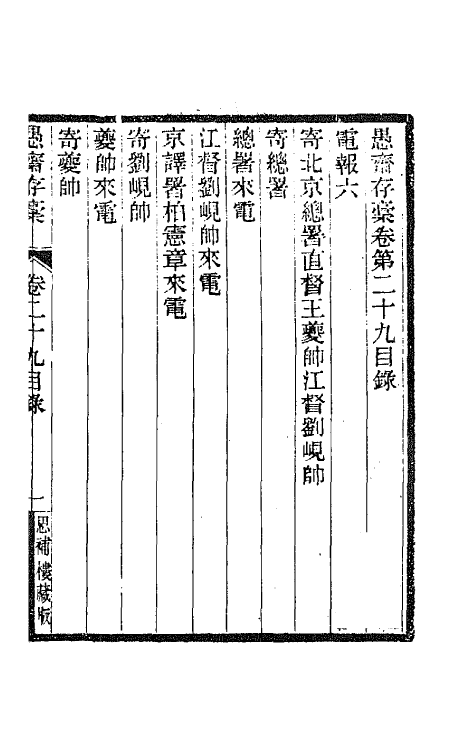 愚齋存藁卷第二十九目錄
電報六
寄北京總署直督王夔帥江督劉峴帥
寄總署
總署來電
江督劉峴帥來電
京譯署柏憲章來電
寄劉峴帥
夔帥來電
寄夔帥
愚齋存藁
卷二十九目錄
一
思補樓藏版